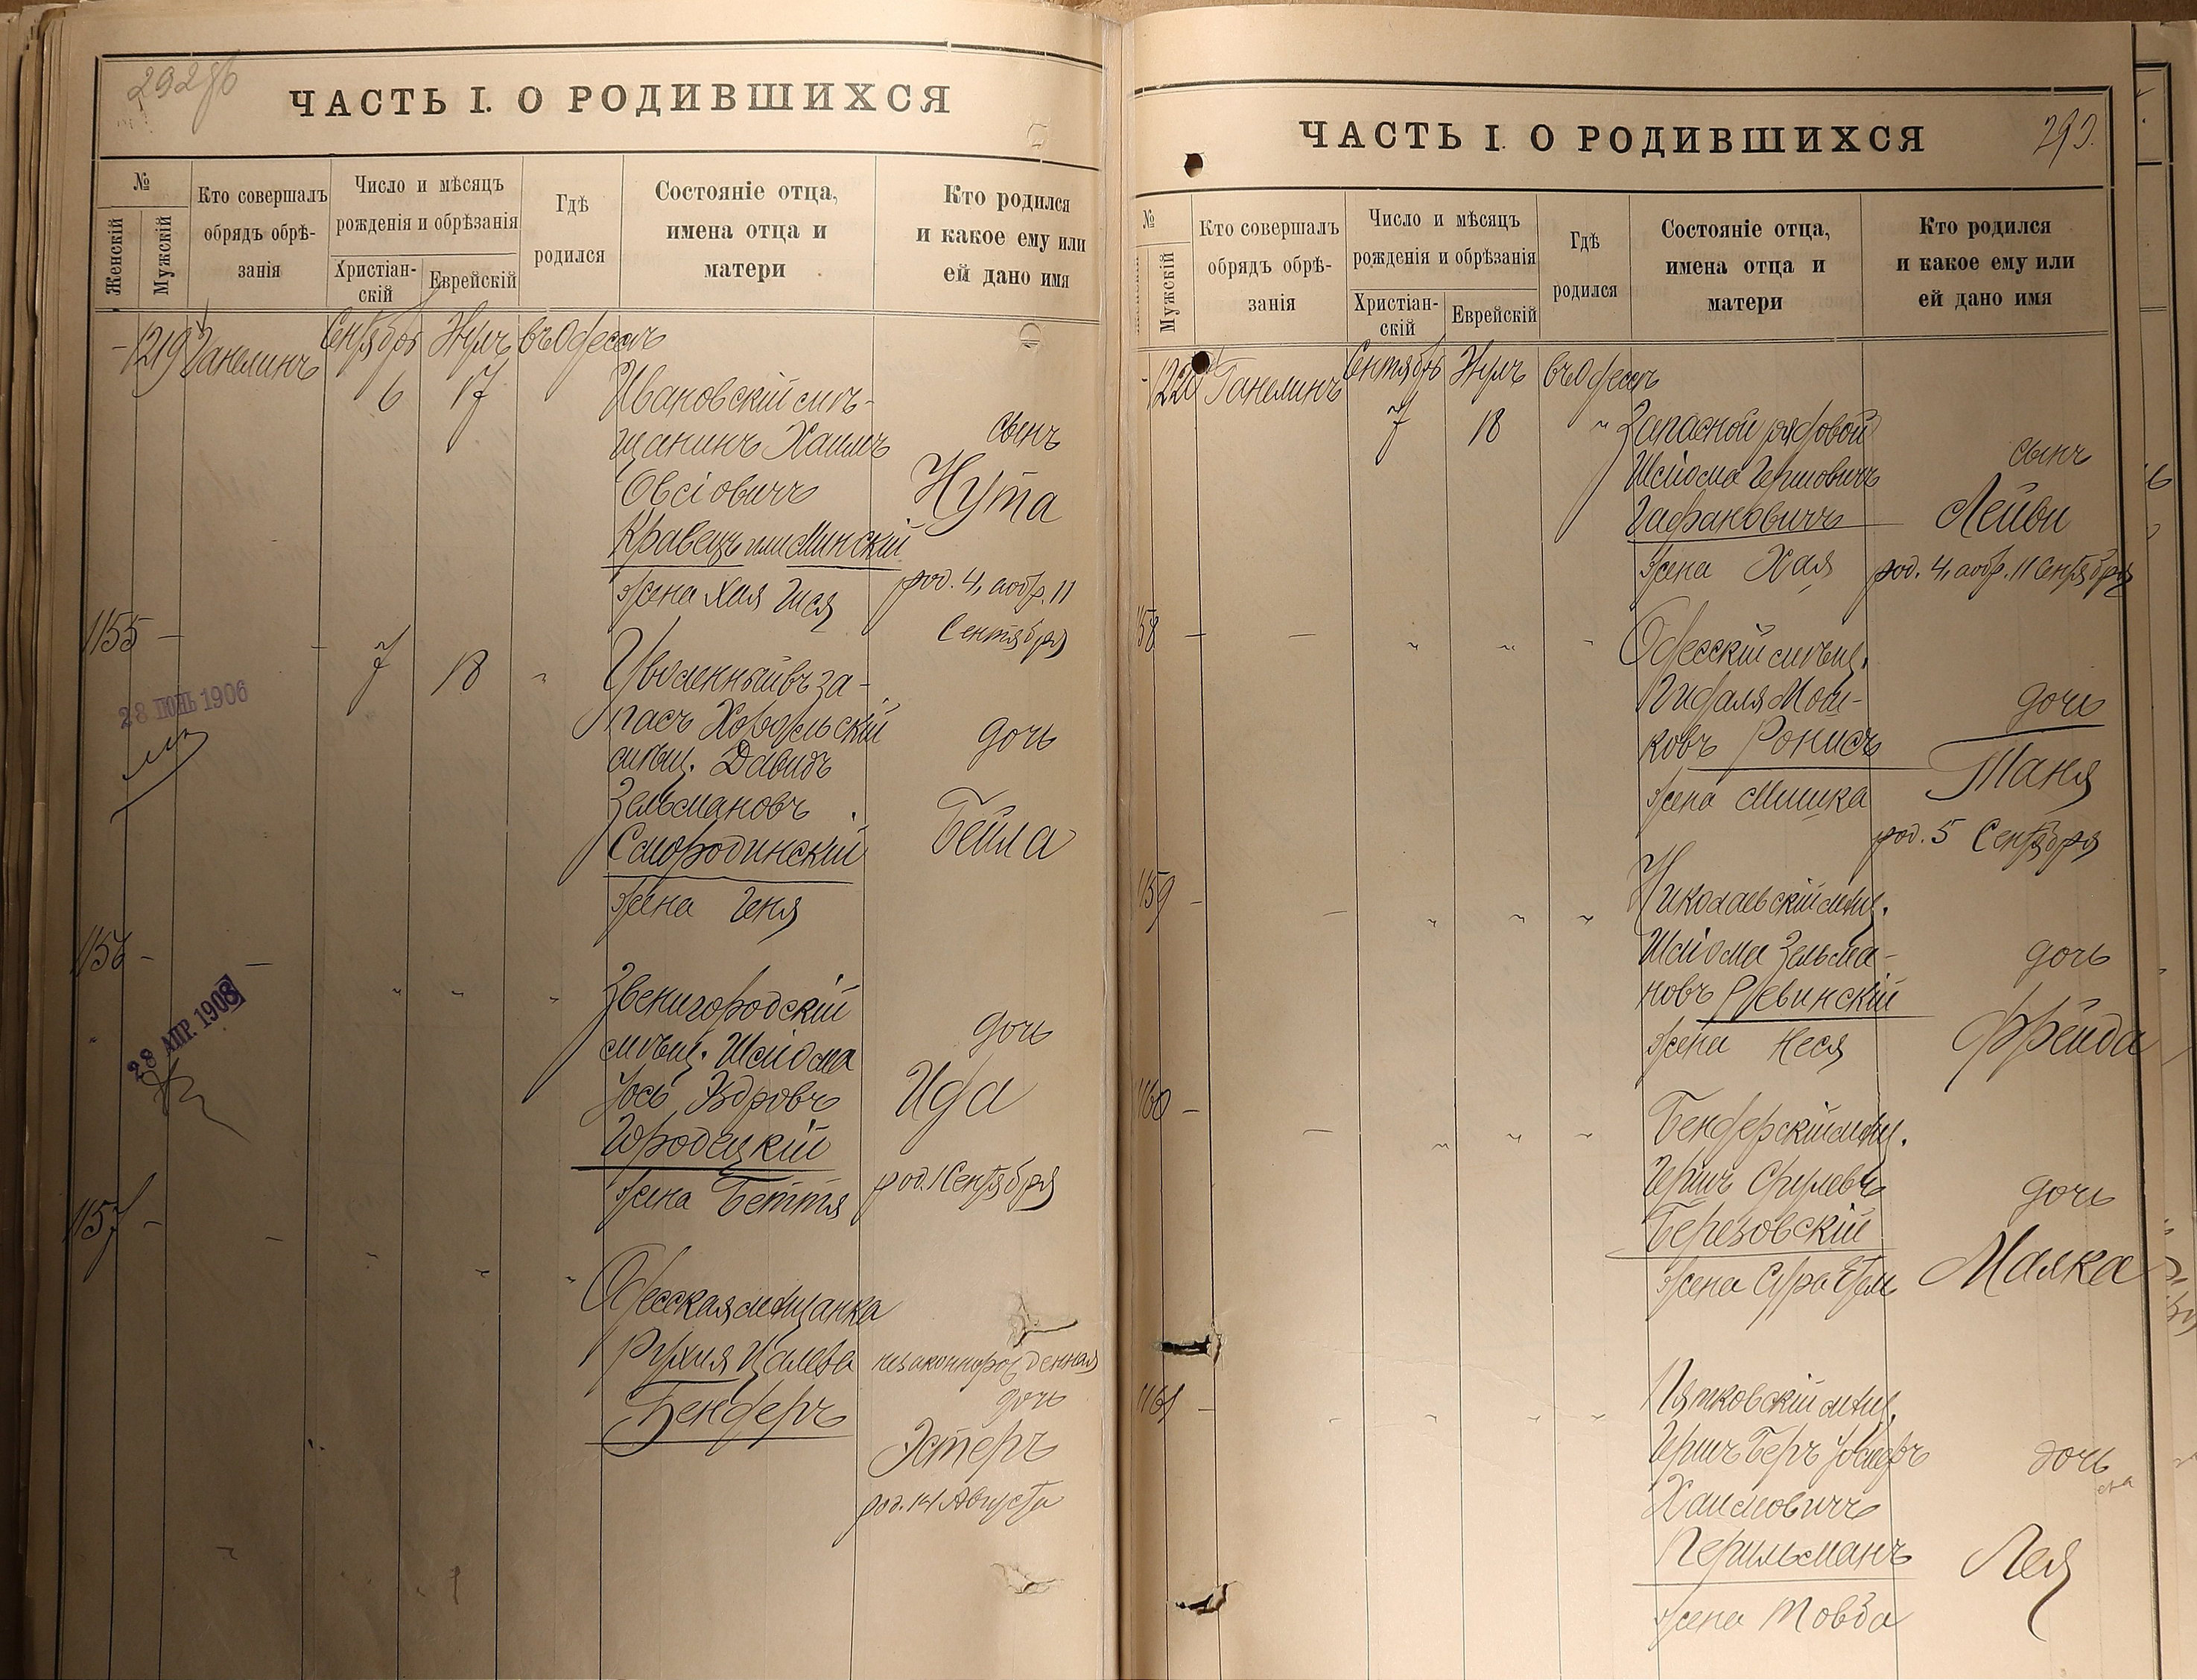 292об
ЧАСТЬ I. О РОДИВШИХСЯ
№
Женскій
Мужскій
Кто совершалъ
обрядъ обрѣ-
занія
Число и мѣсяцъ
рожденія и обрѣзанія
Христіан-
скій
Еврейскій
Гдѣ
родился
Состояніе отца,
имена отца и
матери
Кто родился
и какое ему или
ей дано имя
1219 Ганелинъ Сентябрь въ Одессѣ
6 17
Ивановскій мѣ-
щанинъ Хаимъ
Овсіовичъ
Кравецъ или Минскій
жена Хая
сынъ
Нута
род. 4, а обр. 11
Сентября
1155 -
28 ІЮНЬ 1906
7 18
Уволенный въ за-
пасъ Хорольскій
мѣщ. Давидъ
Зельмановъ
Смородинскій
жена Геня
дочь
Бейла
1156 -
28 АПР. 1908
Звенигородскій
мѣщ. Шлёма
Іось
Городецкій
жена Бетти
дочь
Ида
род. 1 Сентября
1157 -
Одесская мѣщанка
Рухля
Бендеръ
незаконнорожденная
дочь
Эстеръ
род. 14 Августа
ЧАСТЬ I. О РОДИВШИХСЯ
293.
№
Мужскій
Кто совершалъ
обрядъ обрѣ-
занія
Число и мѣсяцъ
рожденія и обрѣзанія
Христіан-
скій
Еврейскій
Гдѣ
родился
Состояніе отца,
имена отца и
матери
Кто родился
и какое ему или
ей дано имя
1220 Ганелинъ Сентябрь въ Одессѣ
7 18
Запасной рядовой
Шлёма Гершовичъ
жена Хая
сынъ
Лейви
род. 4, а обр. 11 Сентября
1158 -
Одесскій мѣщ.
Мош-
ковъ
жена
дочь
Таня
род. 5 Сентября
1159 -
Николаевскій мѣщ.
Шлёма Зельма-
новъ Левинскій
жена Неся
дочь
Фрейда
1160 -
Бендерскій мѣщ.
Гершъ Срулевъ
Березовскій
жена Сура
дочь
Малка
1161 -
Пятковскій мѣщ.
Гершъ Беръ
Хаимовичъ
Перильманъ
жена Товба
дочь
Лея